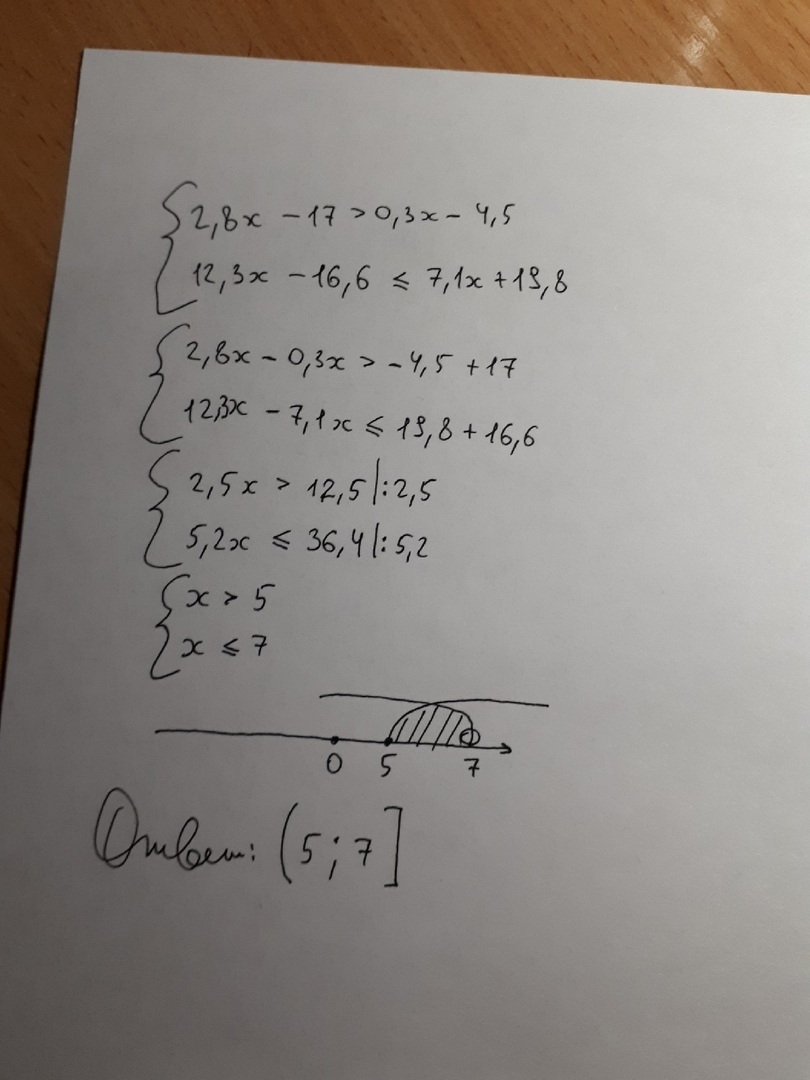 2,8x - 17 > 0,3x - 4,5
12,3x - 16,6 ⩽ 7,1x + 19,8
2,8x - 0,3x > - 4,5 + 17
12,3x - 7,1x ⩽ 19,8 + 16,6
2,5x > 12,5 |: 2,5
5,2x ⩽ 36,4 |: 5,2
x > 5
x ⩽ 7
0 5 7
Ответ: (5; 7]